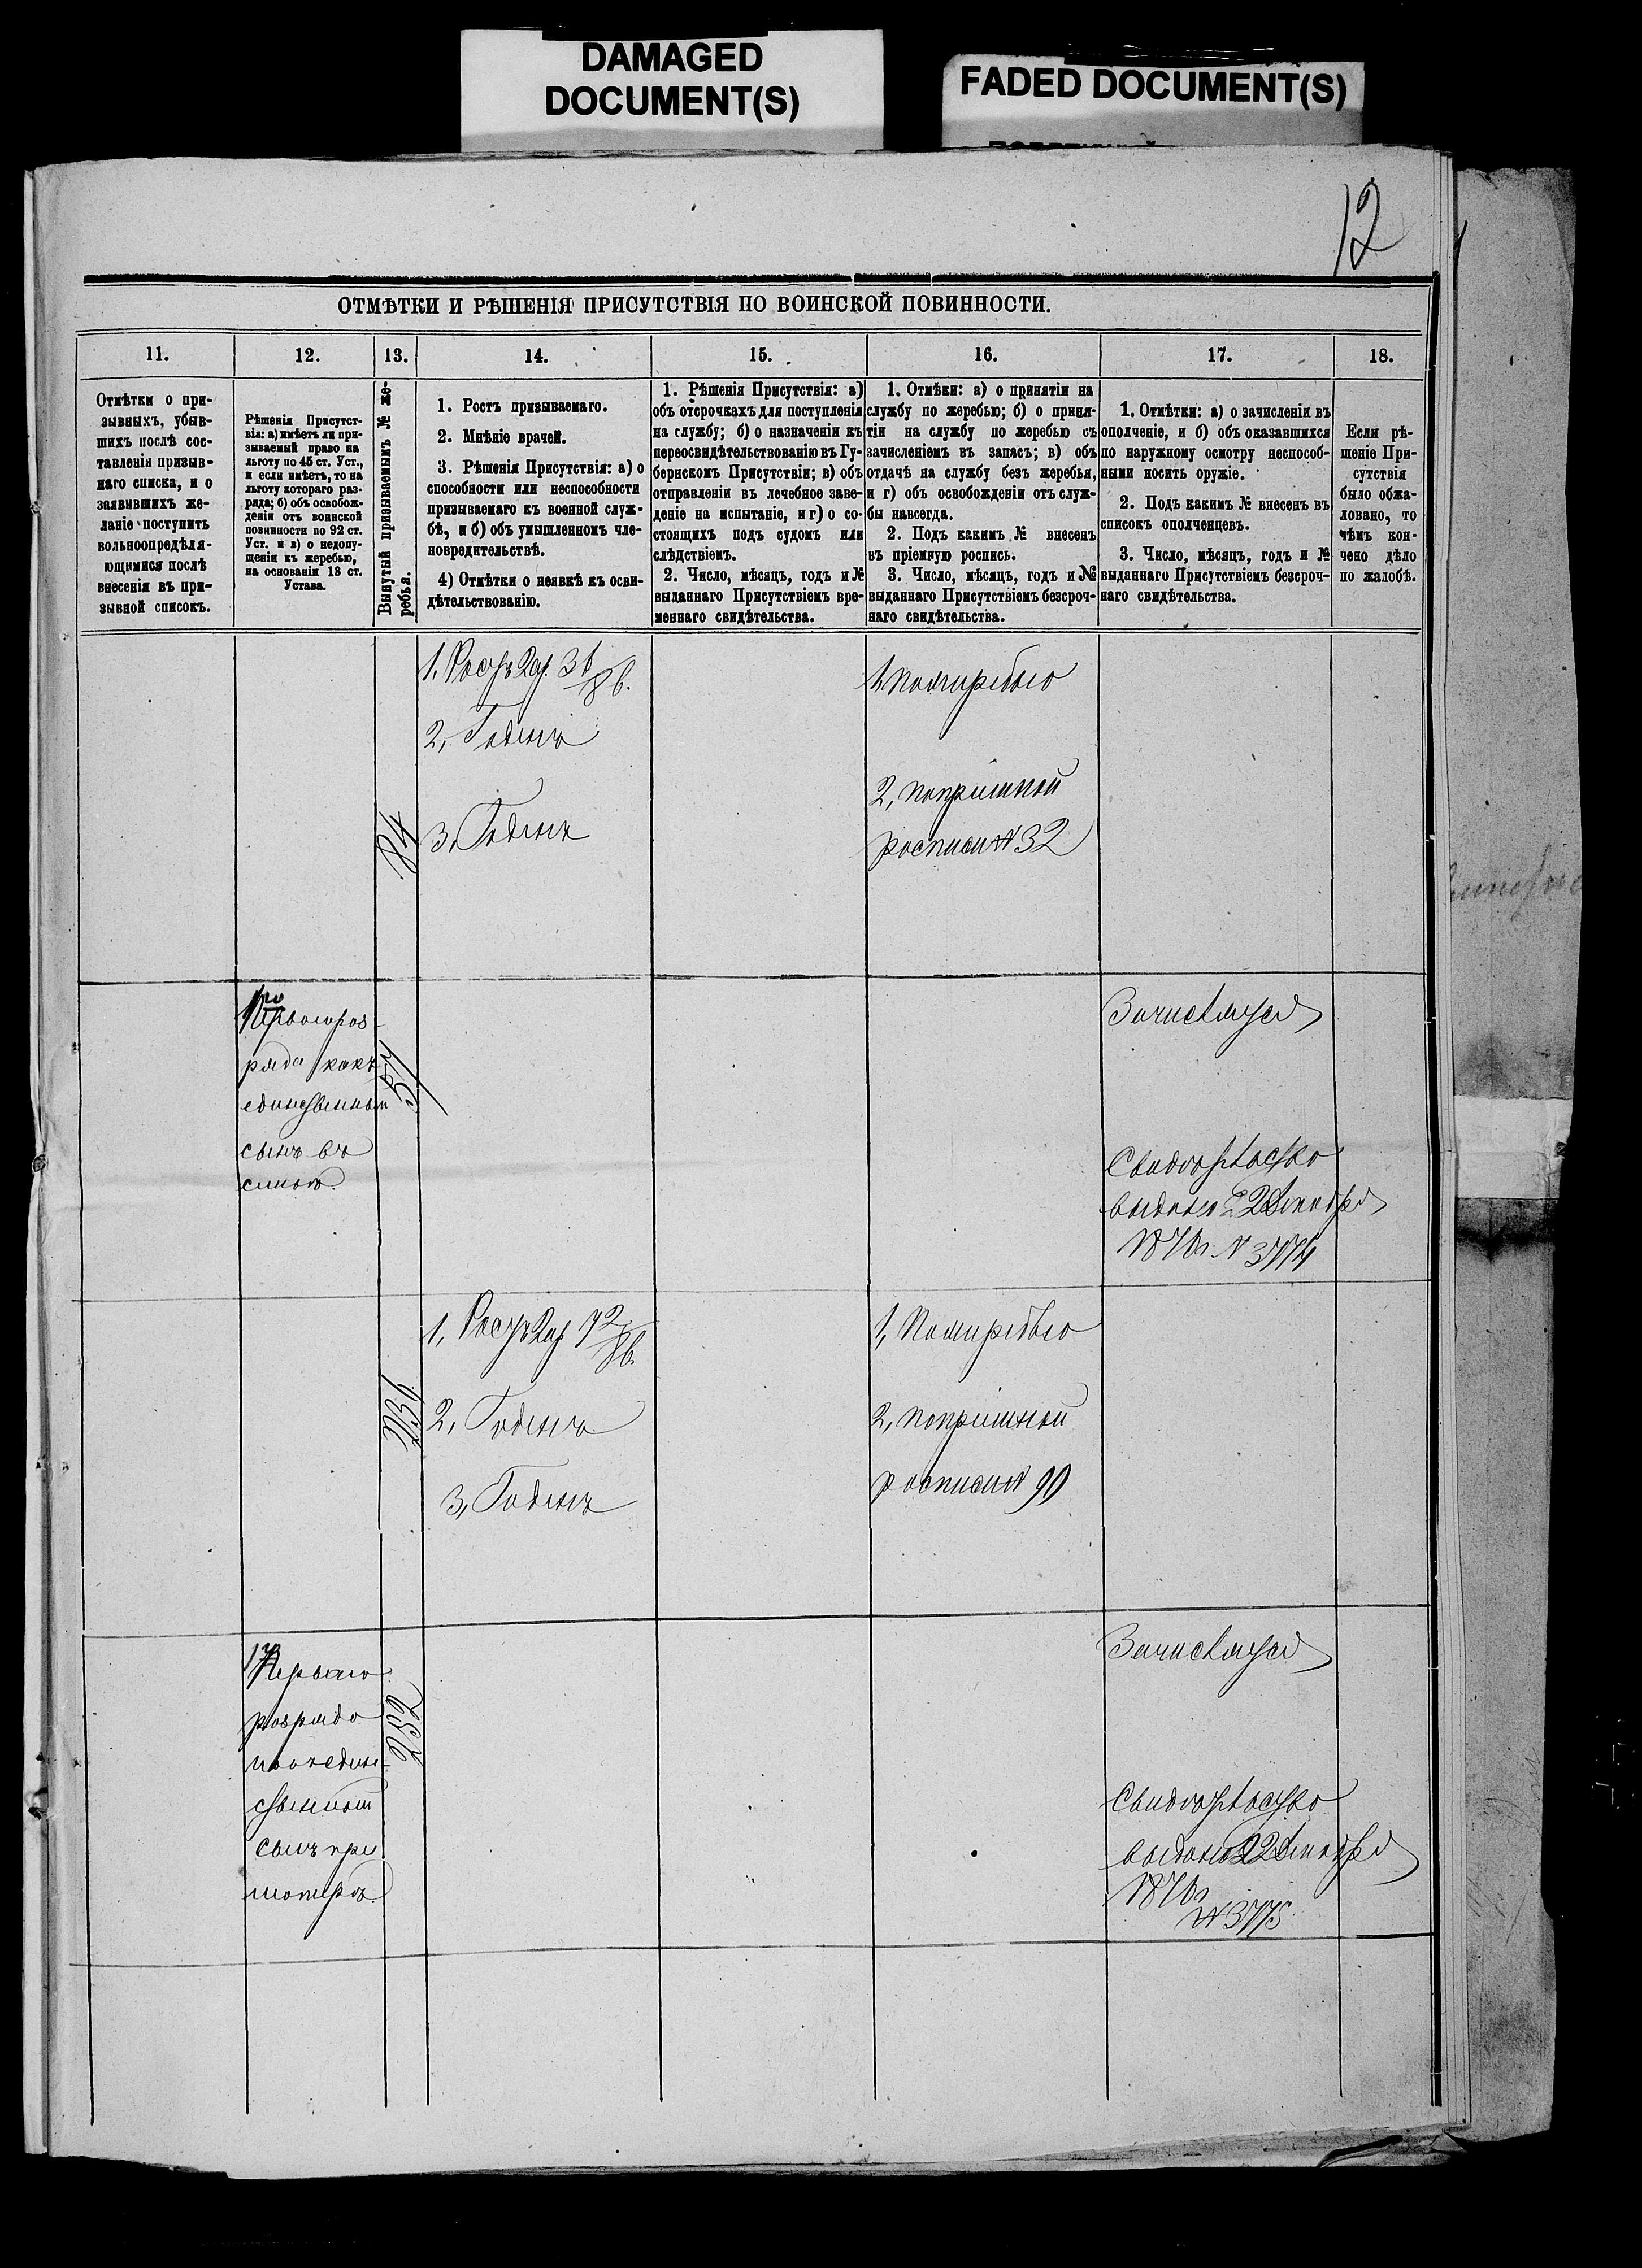 DAMAGED
DOCUMENT(S)
FADED DOCUMENT(S)
12
ОТМѢТКИ И РѢШЕНІЯ ПРИСУТСТВІЯ ПО ВОИНСКОЙ ПОВИННОСТИ.
11.
12.
13.
14.
15.
16.
17.
18.
Отмѣтки о при-
зывныхъ, убыв-
шихъ послѣ сос-
тавленія призыв-
наго списка, и о
заявившихъ же-
ланіе поступить
вольноопредѣля-
ющимися послѣ
внесенія въ при-
зывной списокъ.
Рѣшенія Присутст-
вія: а) имѣетъ ли при-
зываемый право на
льготу по 45 ст. Уст.,
и если имѣетъ, то на
льготу котораго раз-
ряда; б) объ освобож-
деніи отъ воинской
повинности по 92 ст.
Уст. и в) о недопу-
щеніи къ жеребью,
на основаніи 13 ст.
Устава.
Вынутый призываемымъ № же-
ребья.
1. Ростъ призываемаго.
2. Мнѣніе врачей.
3. Рѣшенія Присутствія: а) о
способности или неспособности
призываемаго къ военной служ-
бѣ, и б) объ умышленномъ чле-
новредительствѣ.
4) Отмѣтки о неявкѣ къ осви-
дѣтельствованію.
1. Рѣшенія Присутствія: а)
объ отсрочкахъ для поступленія
на службу; б) о назначеніи къ
переосвидѣтельствованію въ Гу-
бернскомъ Присутствіи; в) объ
отправленіи въ лечебное заве-
деніе на испытаніе, и г) о со-
стоящихъ подъ судомъ или
слѣдствіемъ.
2. Число, мѣсяцъ, годъ и №
выданнаго Присутствіемъ вре-
меннаго свидѣтельства.
1. Отмѣки: а) о принятіи на
службу по жеребью; б) о приня-
тіи на службу по жеребью съ
зачисленіемъ въ запасъ; в) объ
отдачѣ на службу безъ жеребья,
и г) объ освобожденіи отъ служ-
бы навсегда.
2. Подъ какимъ № внесенъ
въ пріемную роспись.
3. Число, мѣсяцъ, годъ и №
выданнаго Присутствіемъ безсроч-
наго свидѣтельства.
1. Отмѣтки: а) о зачисленіи въ
ополченіе, и б) объ оказавшихся
по наружному осмотру неспособ-
ными носить оружіе.
2. Подъ какимъ № внесенъ въ
списокъ ополченцевъ.
3. Число, мѣсяцъ, годъ и №
выданнаго Присутствіемъ безсроч-
наго свидѣтельства.
Если рѣ-
шеніе При-
сутствія
было обжа-
ловано, то
чѣмъ кон-
чено дѣло
по жалобѣ.
84
1, Ростъ 2 ар. 3 6/8 в.
2, Годенъ
3, Годенъ
1, по жеребью
2, по пріемной
росписи № 32
Перваго раз-
ряда какъ
единственный
сынъ въ
семьѣ.
Зачисляется
Свидѣтельство
выдано 22 Декабря
№ 3774
236
1, Ростъ 2 ар. 7 2/8 в.
2, Годенъ
3, Годенъ
1, По жеребью
2, по пріемной
росписи № 99
Перваго
разряда
какъ един-
ственный
сынъ при
матери.
252
Зачисляется
Свидѣтельство
выдано 22 Декабря
№ 3775